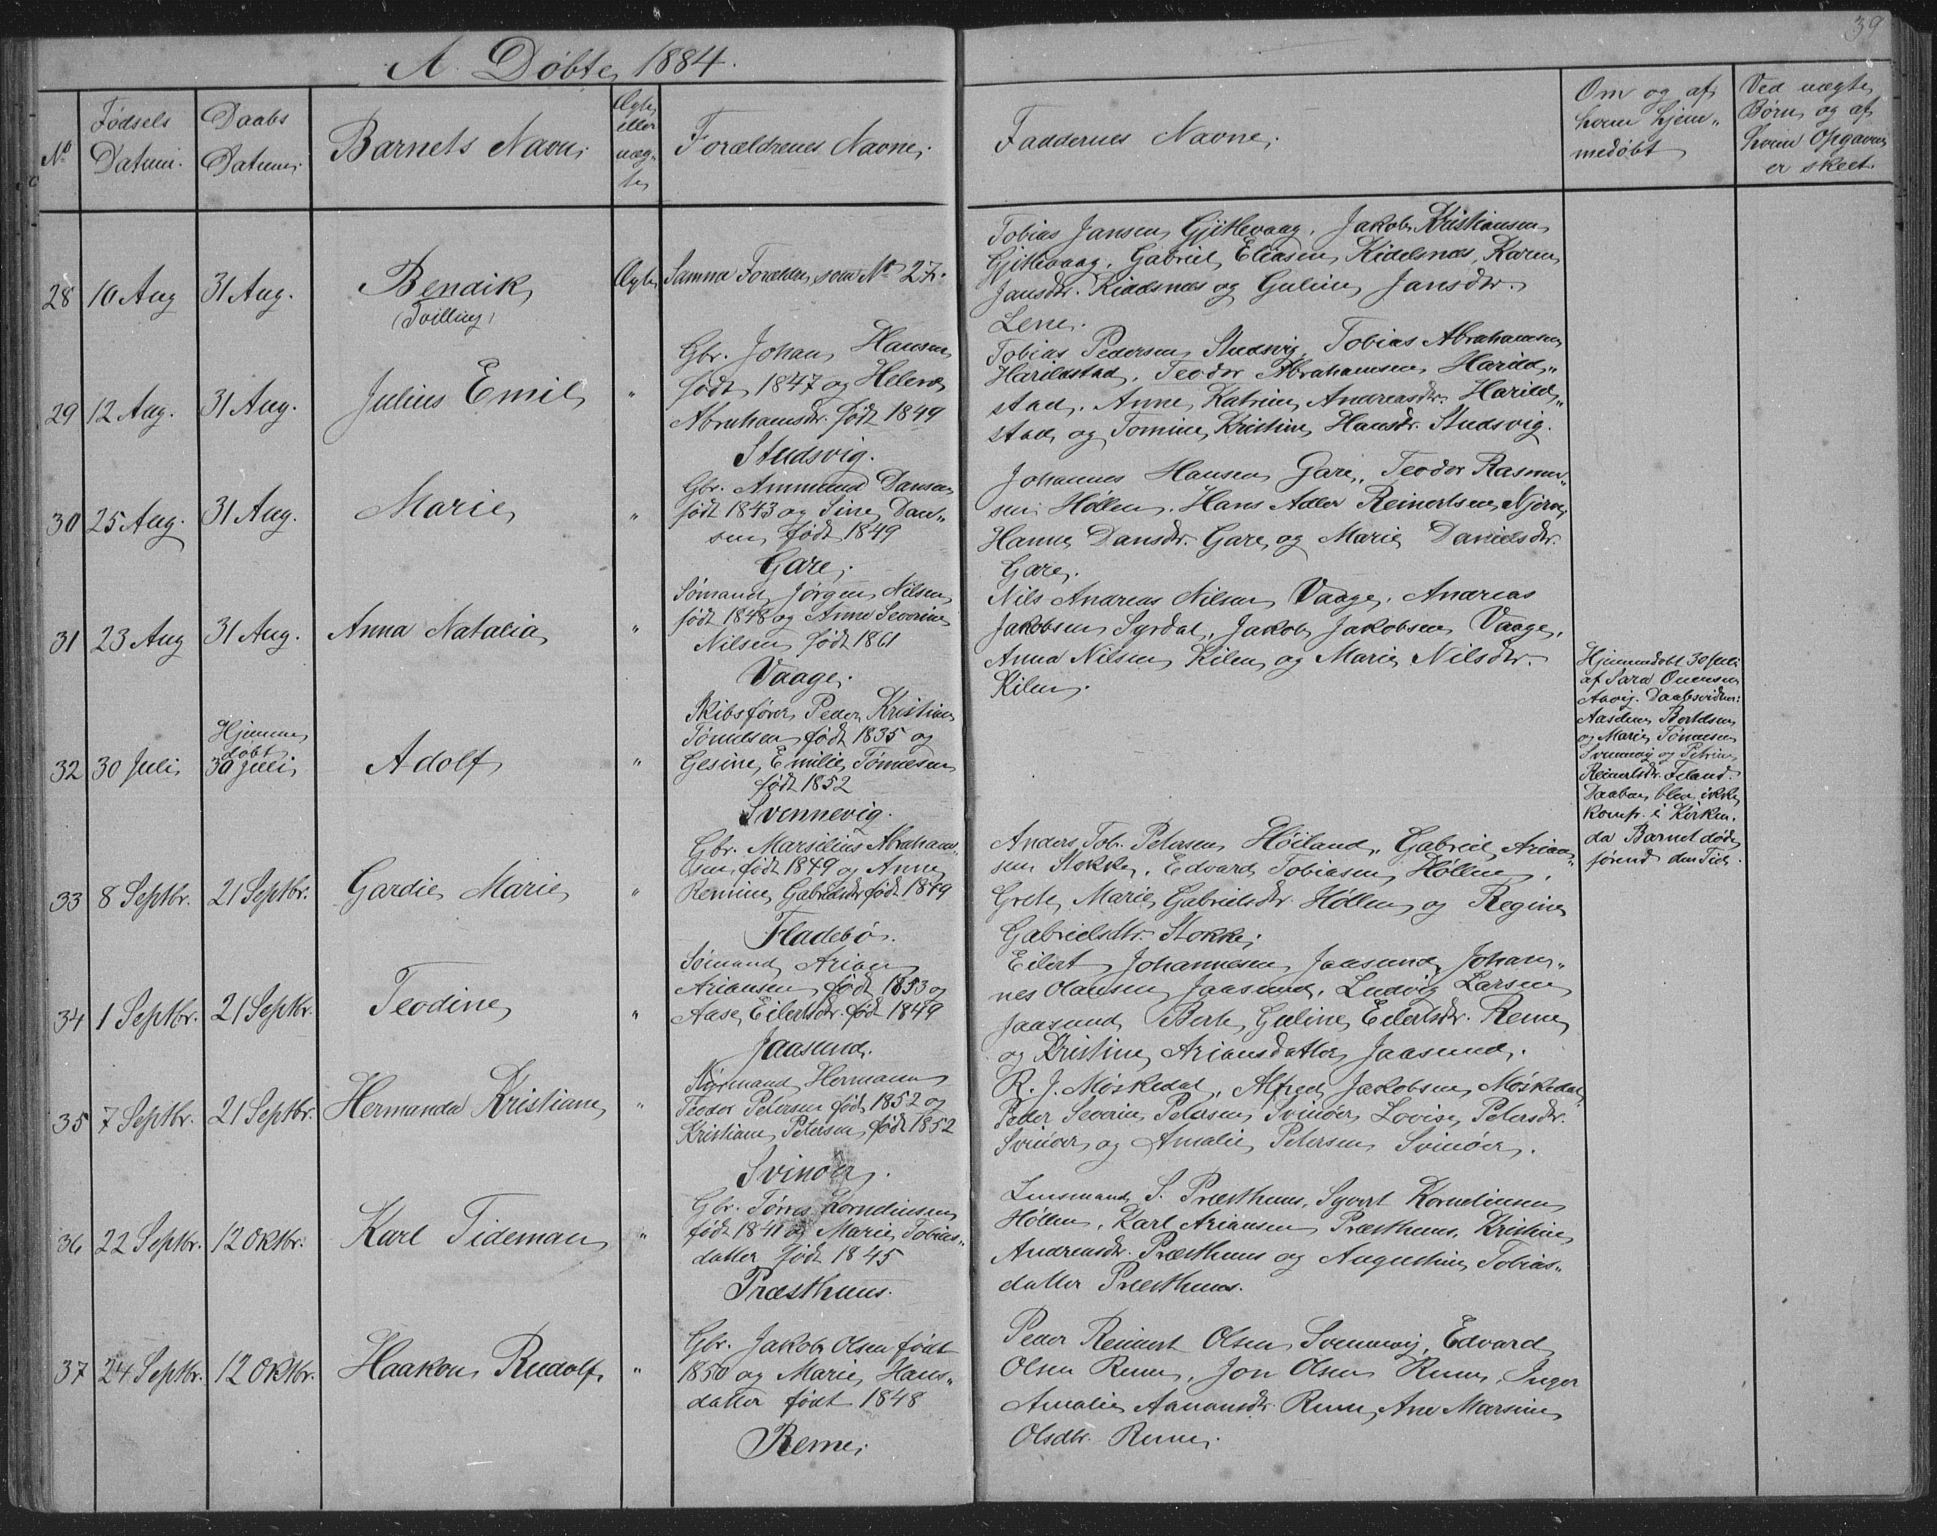 39
A. Døbte, 1884.
No
Fødsels Datum.
Daabs Datum.
Barnets Navn.
Ægte eller uægte
Forældrenes Navne.
Faddernes Navne.
Om og af hvem hjemmedøbt
Ved uægte Børn, og af hvem Opgaven er skeet.
28 10 Aug 31 Aug. Bendik Ægte Samme Forældre som No 27.
(Tvilling)
Tobias Jansen Gjitlevaag, Jakob Kristiansen
Gjitlevaag, Gabriel Eliasen Kidelsnæs, Karen
Jansdtr. Kidelsnæs og Guline Jansdtr.
Lene.
29 12 Aug. 31 Aug. Julius Emil "
Gbr. Johan Hansen
født 1847 og Helene
Abrahamsdtr. født 1849
Studsvig.
Tobias Pedersen Studsvig, Tobias Abrahamsen
Harildstad, Teodor Abrahamsen Harild„
stad, Anne Katrine Andreasdtr. Harild„
stad og Tomine Kristine Hansdtr. Studsvig.
30 25 Aug. 31 Aug. Marie "
Gbr. Ammund Dansen
født 1843 og Sine Dan„
sen født 1849
Gare.
Johannes Hansen Gare, Teodor Rasmu„
sen Høllen, Hans Adler Reinertsen Njerve,
Hanne Dansdtr. Gare og Marie Danielsdtr.
Gare.
31 23 Aug 31 Aug. Anna Natalia "
Sømand Jørgen Nilsen
født 1848 og Anne Severine
Nilsen født 1861
Vaage.
Nils Andreas Nilsen Vaage, Andreas
Jakobsen Syrdal, Jakob Jakobsen Vaage,
Anna Nilsen Kilen og Marie Nilsdtr.
Kilen.
32 30 Juli Hjemme
døbt
30 Juli Adolf "
Skibsfører Peder Kristian
Tønnesen født 1835 og
Gesine Emilie Tønnesen
født 1852
Svennevig.
Hjemmedøbt 30 Juli
af Sara Ommensen
Aavig. Daabsvidner:
Aasden Bertelsen
og Marie Tønnesen
Svennevig og Petrine
Reinertsdtr. Feland.
Daaben blev ikke
konfr. i Kirken,
da Barnet døde
førend den Tid.
33 8 Septbr. 21 Septbr. Gardie Marie "
Gbr. Marselius Abraham„
sen født 1849 og Anne
Remine Gabrielsdtr. født 1849
Fladebø.
Anders Tob. Petersen Høiland, Gabriel Arian„
sen Stokke, Edvard Tobiasen Høllen,
Grete Marie Gabrielsdtr. Høllen og Regine
Gabrielsdtr. Stokke.
34 1 Septbr. 21 Septbr. Teodine "
Sømand Arian
Ariansen født 1853 og
Aase Eilertsdtr. født 1849
Jaasund.
Eilert Johannesen Jaasund, Johan„
nes Olausen Jaasund, Ludvig Larsen
Jaasund, Berte Guline Eilertsdtr. Reme
og Kristine Ariansdatter Jaasund.
35 7 Septbr. 21 Septbr. Hermanda Kristiane "
Styrmand Hermann
Teodor Petersen født 1852 og
Kristiane Petersen født 1852
Svinøer.
R. J. Møskedal, Alfred Jakobsen Møskedal,
Peder Severin Petersen Svinøer, Lovise Petersdtr.
Svinøer og Amalie Petersen Svinøer.
36 22 Septbr. 12 Oktbr. Karl Tideman "
Gbr. Tørres Korneliusen
født 1841 og Marie Tobias„
datter født 1845
Præsthuus.
Lensmand S. Præsthuus, Syvert Korneliusen
Høllen, Karl Ariansen Præsthuus, Kristine
Andreasdtr. Præsthuus og Augustine Tobias„
datter Præsthuus.
37 24 Septbr. 12 Oktbr. Haakon Rudolf "
Gbr. Jakob Olsen født
1850 og Marie Hans„
datter født 1848
Reme.
Peder Reinert Olsen Svennevig, Edvard
Olsen Reme, Jon Olsen Reme, Inger
Amalie Aanonsdtr. Reme, Ane Marsine
Olsdtr. Reme.